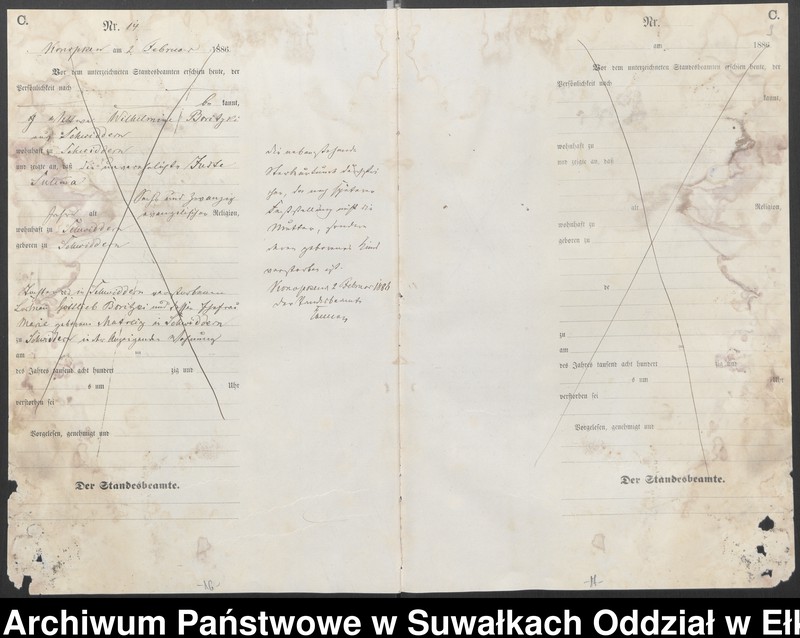 C.
Nr. 14
Konopken am 2 Februar 1886.
Vor dem unterzeichneten Standesbeamten erschien heute, der
Persönlichkeit nach
be kannt,
Wilhelmine Boritzki
aus Schwiddern
wohnhaft zu Schwiddern
und zeigte an, daß die unverehelichte Juste
Sulima
Sechs und zwanzig
Jahre alt evangelischer Religion,
wohnhaft zu Schwiddern
geboren zu Schwiddern
in Schwiddern verstorbenen
Gottlieb Boritzki und dessen Ehefrau
Marie geborene in Schwiddern
zu Schwiddern in der Wohnung
am ten
des Jahres tausend acht hundert zig und
s um Uhr
verstorben sei
Vorgelesen, genehmigt und
Der Standesbeamte.
Die nebenstehende
Sterbeurkunde
da nach späterer
Feststellung nicht die
Mutter, sondern
deren geborenes Kind
verstorben ist.
Konopken 2 Februar 1886
Der Standesbeamte
C.
Nr.
am 1886
Vor dem unterzeichneten Standesbeamten erschien heute, der
Persönlichkeit nach
kannt,
wohnhaft zu
und zeigte an, daß
alt Religion,
wohnhaft zu
geboren zu
de
zu
am ten
des Jahres tausend acht hundert zig und
s um Uhr
verstorben sei
Vorgelesen, genehmigt und
Der Standesbeamte.
Archiwum Państwowe w Suwałkach Oddział w Ełk